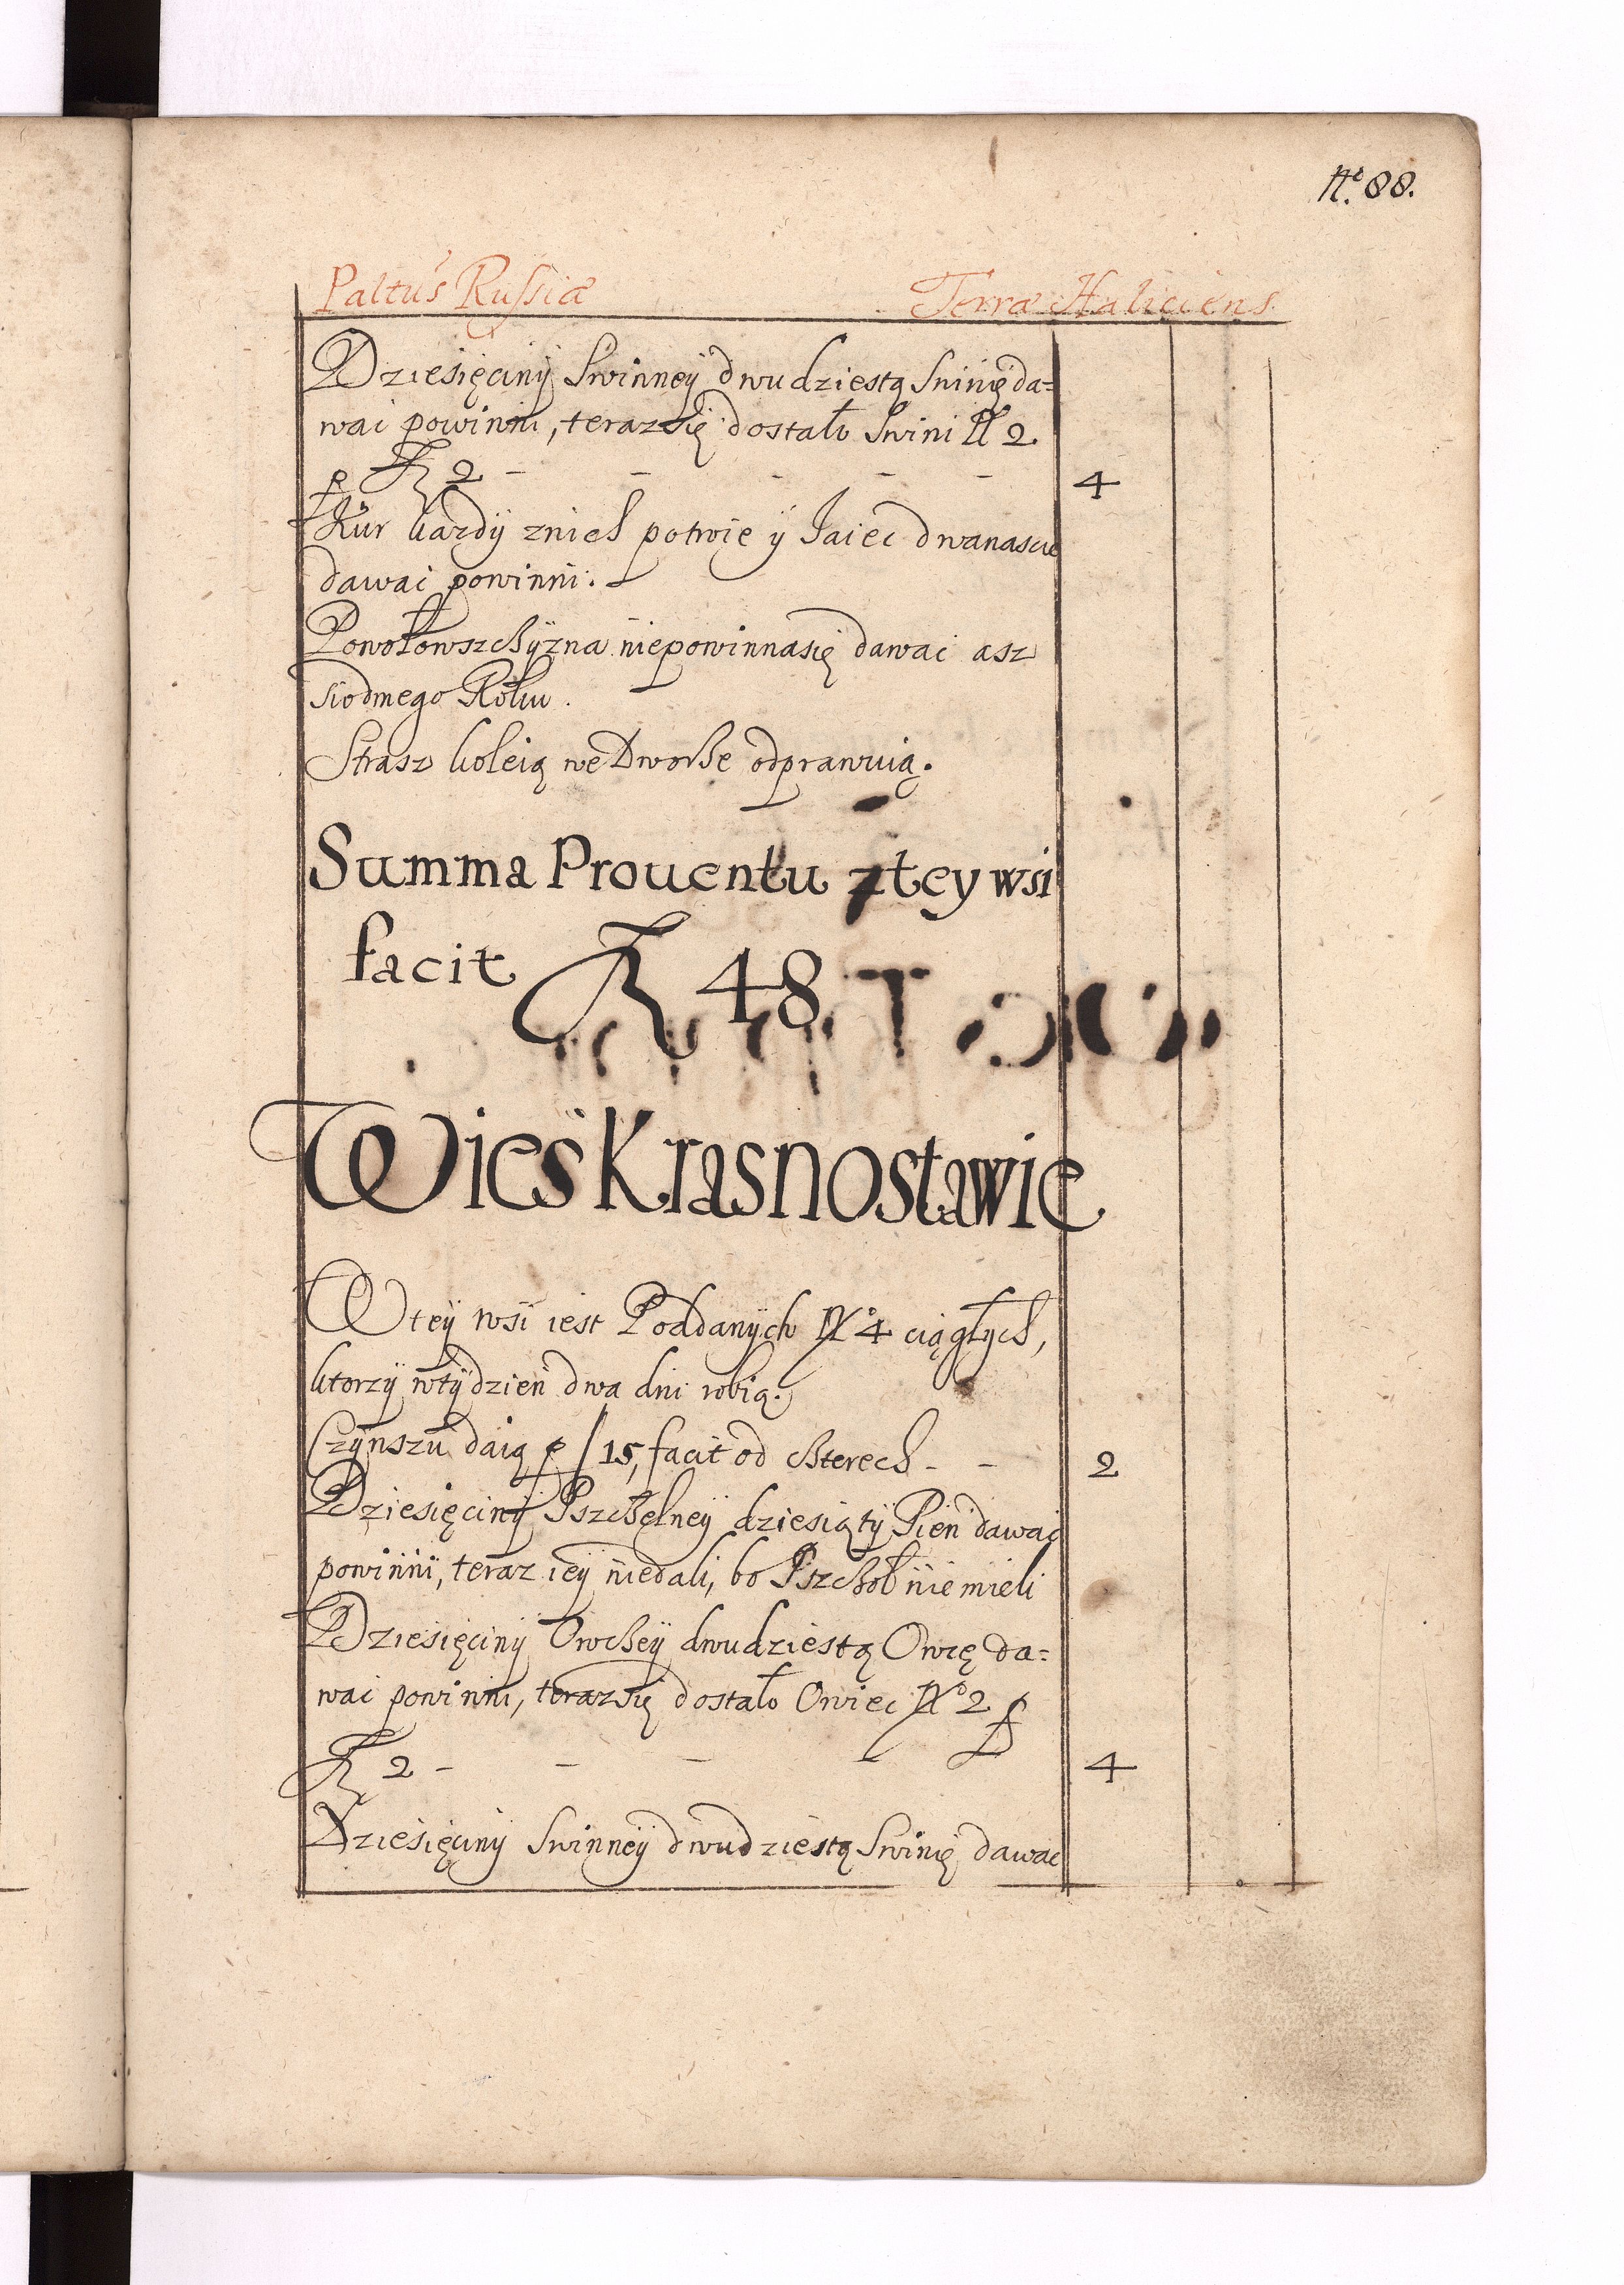 Nº 88.
Paltus Russiæ Terræ Haliciens.
Dziesięciny Swinney dwudziestą Swinię da=
wac powinni, teraz się dostało Swini Nº 2
p fl 2 - - - - - 4
Kur kazdy znich potroie y Jaiec dwanascie
dawac powinni.
Powołowszchyzna niepowinna się dawac asz
siodmego Roku.
Strasz koleią we Dworze odprawuią.
Summa Prouentu z tey wsi
facit fl 48
Wies Krasnostawie
W tey wsi iest Poddanych Nº 4 ciągłych,
ktorzy w tydzien dwa dni robią.
Czynszu daią p / 15, facit od czterech - - 2
Dziesięciny Pszczelney dziesiąty Pien dawac
powinni, teraz iey niedali, bo Pszczoł nie mieli
Dziesięciny Owczey dwudziestą Owcę da=
wac powinni, teraz się dostało Owiec Nº 2 p
fl 2 - - - - 4
Dziesięciny Swinney dwudziestą Swinię dawac